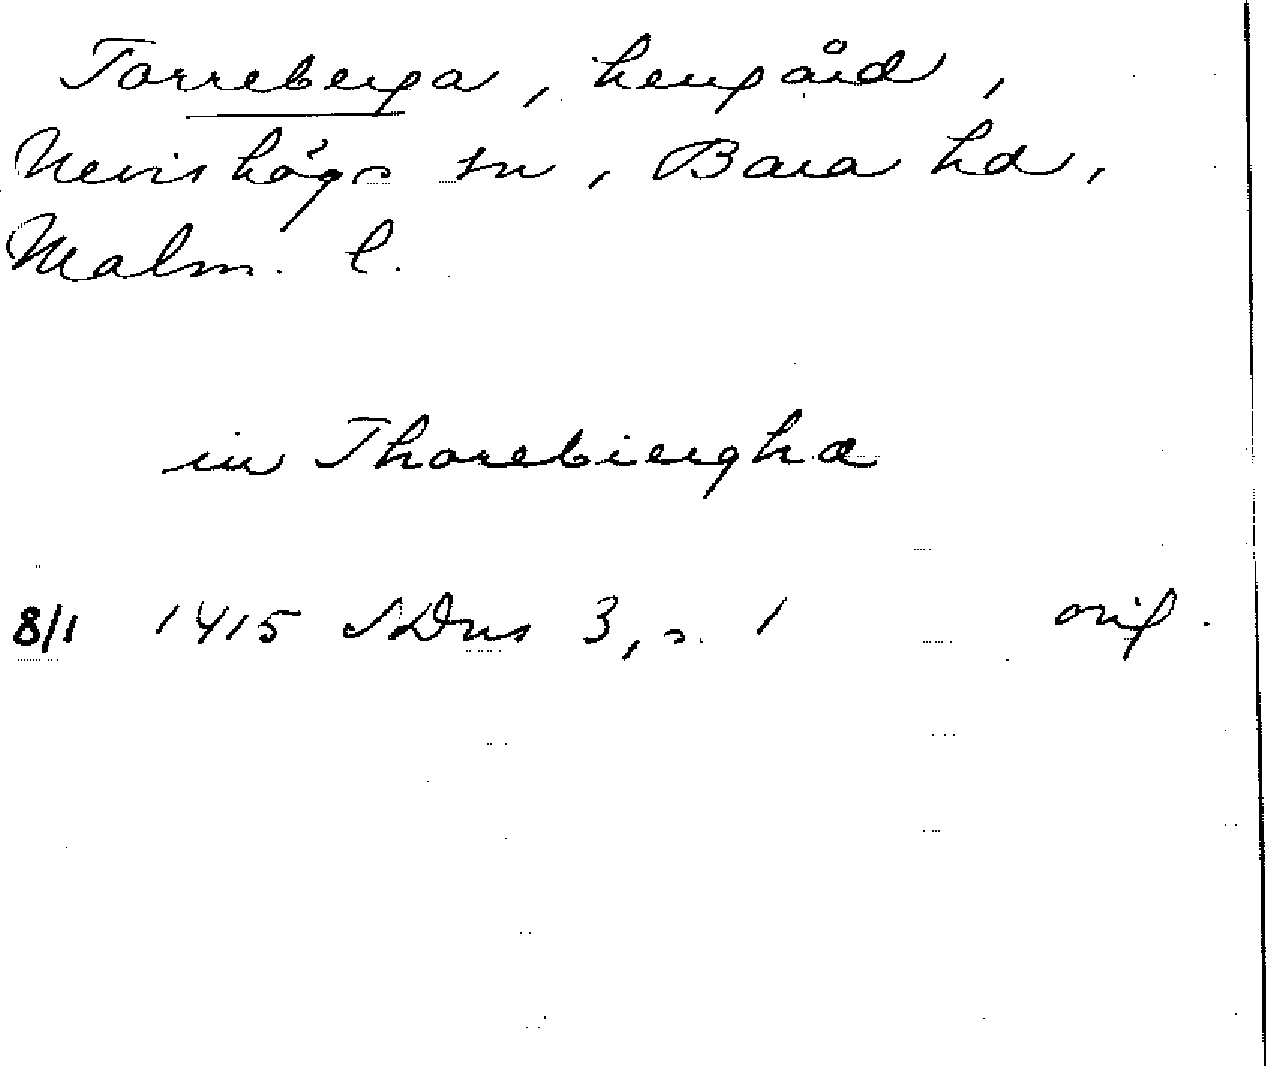 Torreberga, herrgård,
Nevishögs sn, Bara hd,
Malm. l.
in Thorebierghæ
8/1 1415 SDns 3, s. 1 orig.